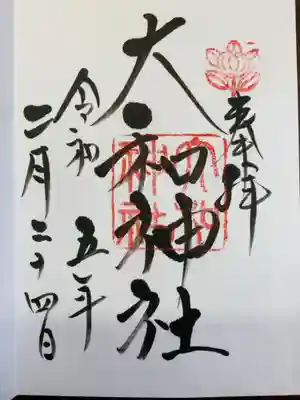 奉拝
大和神社
令和五年
二月二十四日